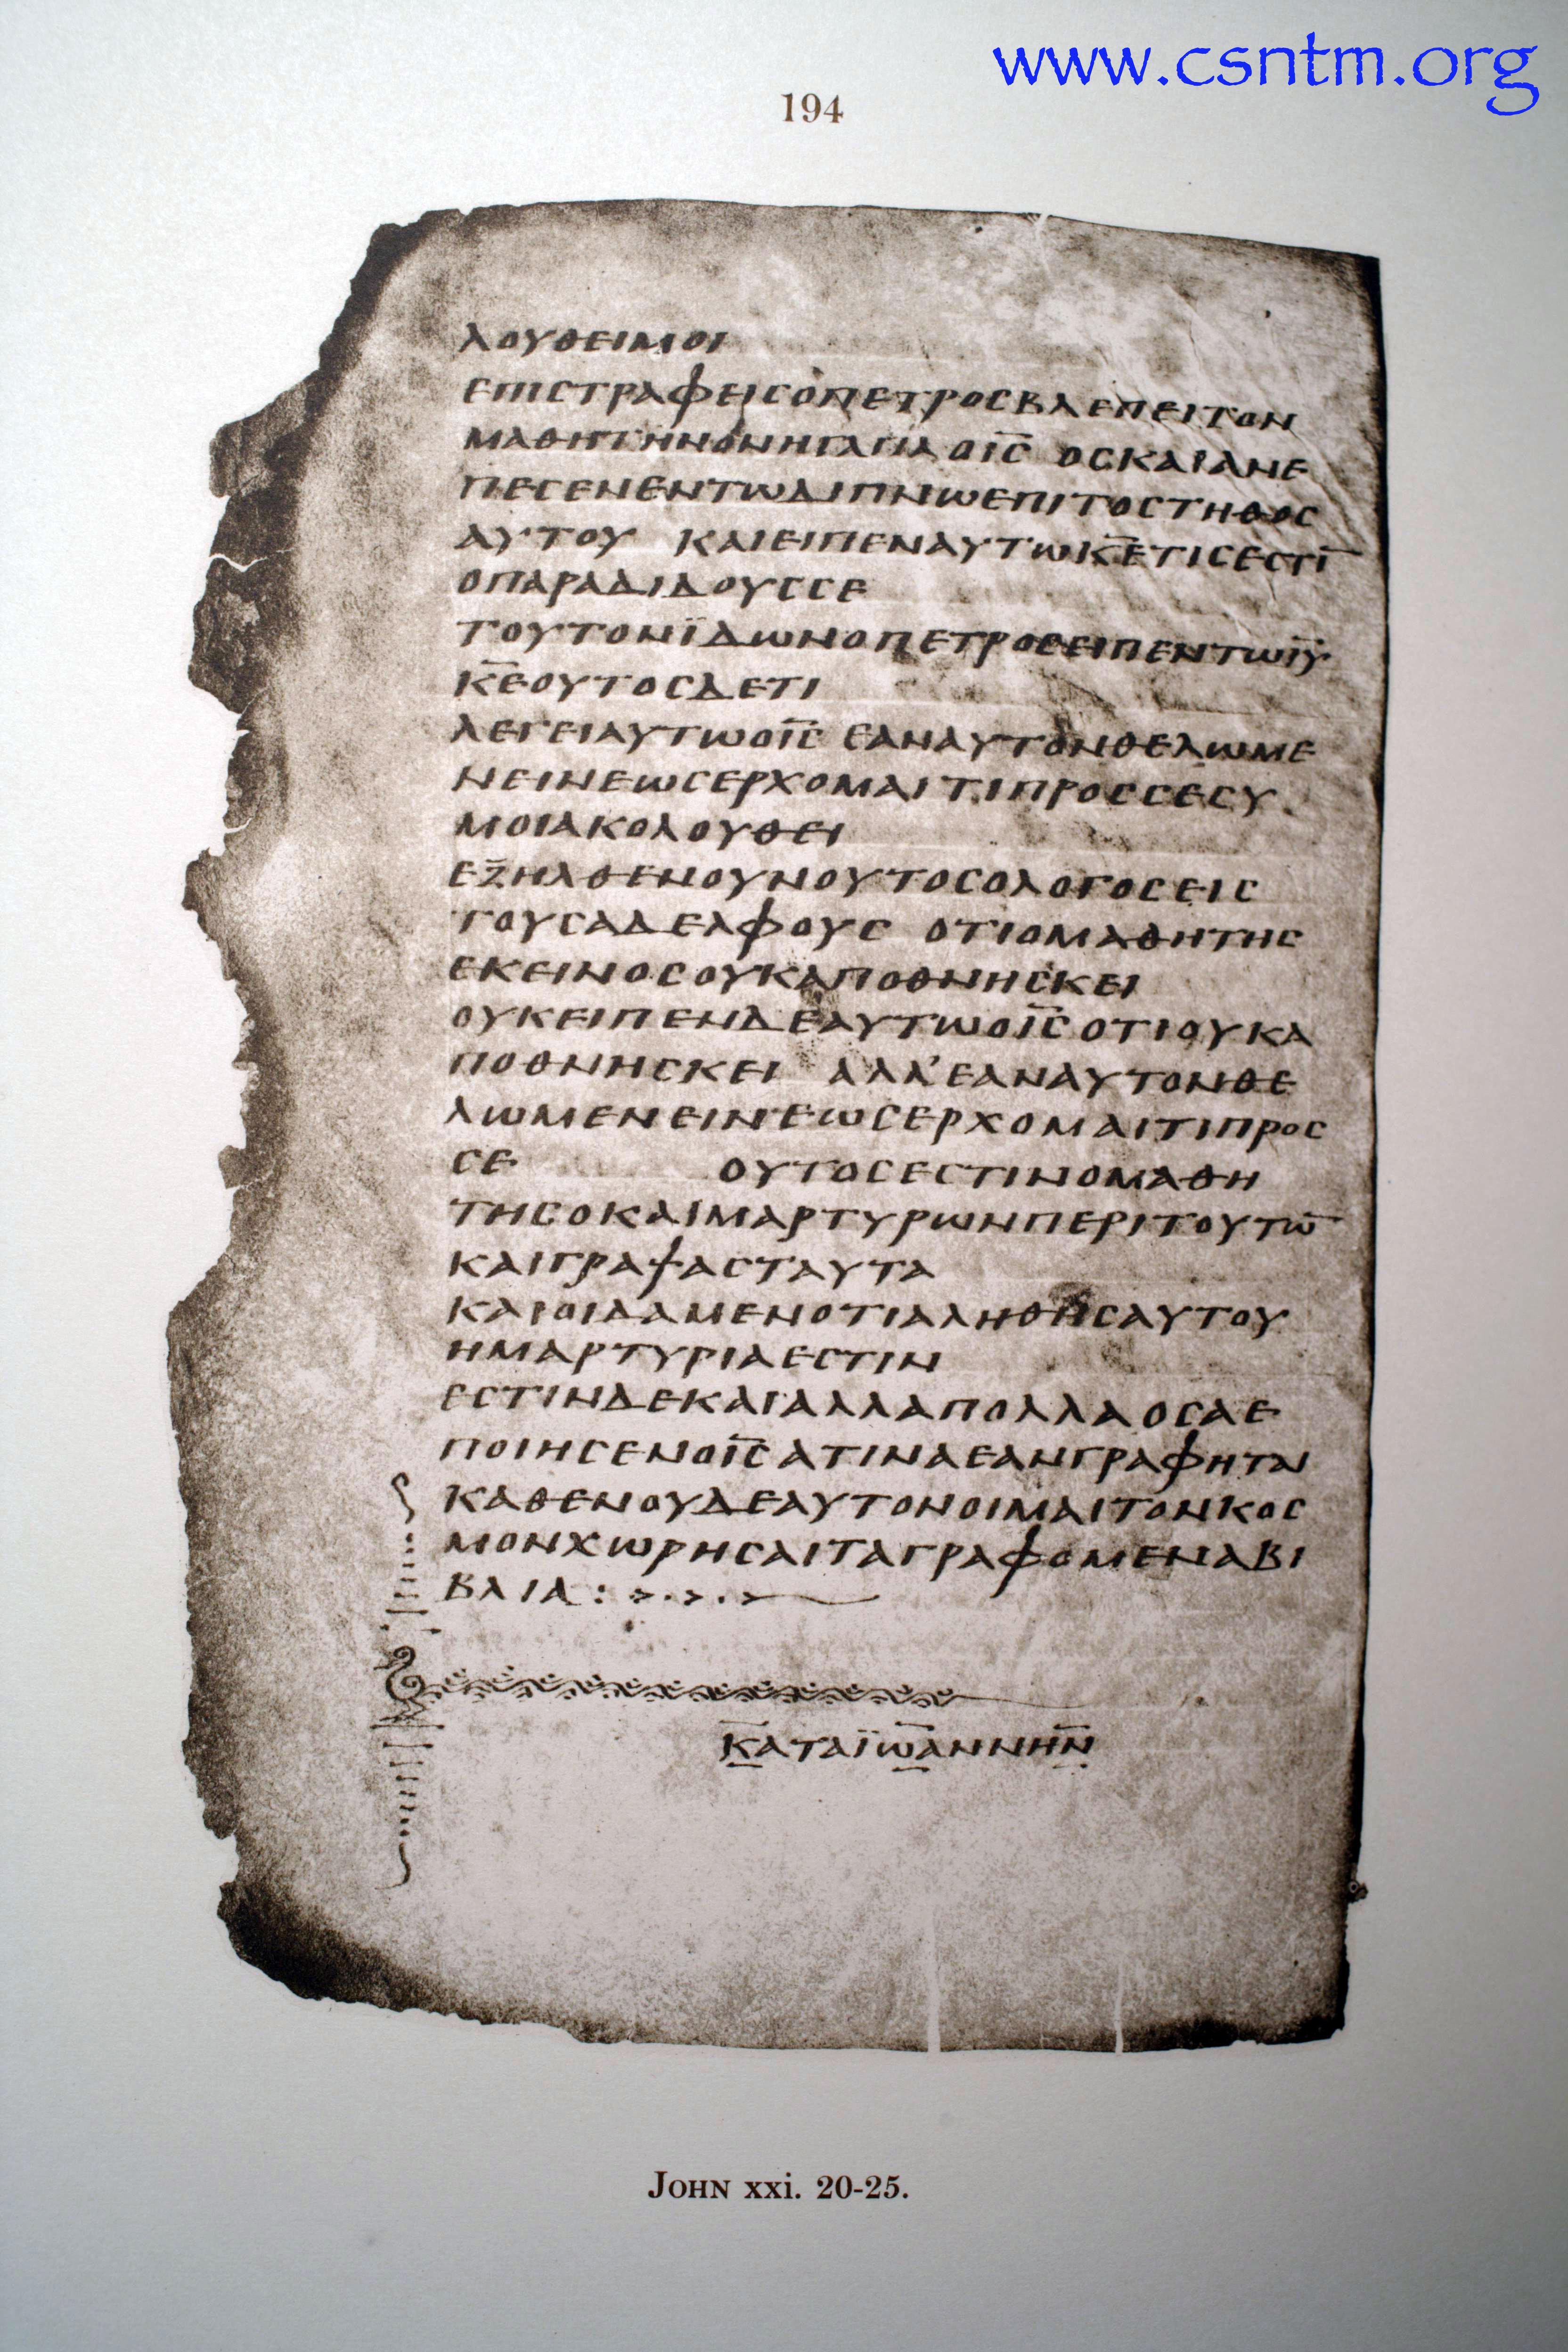 www.csntm.org
194
ΛΟΥΘΕΙΜΟΙ
ΕΠΙСΤΡΑΦΕΙСΟΠΕΤΡΟСΒΛΕΠΕΙΤΟΝ
ΜΑΘΗΤΗΝΟΝΗΓΑΠΑΟΙ̅С̅ ΟСΚΑΙΑΝΕ
ΠΕСΕΝΕΝΤΩΔΙΠΝΩΕΠΙΤΟСΤΗΘΟС
ΑΥΤΟΥ ΚΑΙΕΙΠΕΝΑΥΤΩΚ̅Ε̅ΤΙСΕСΤΙ̅
ΟΠΑΡΑΔΙΔΟΥССΕ
ΤΟΥΤΟΝΪΔΩΝΟΠΕΤΡΟСΕΙΠΕΝΤΩΙ̅Υ̅
Κ̅Ε̅ΟΥΤΟСΔΕΤΙ
ΛΕΓΕΙΑΥΤΩΟΙ̅С̅ ΕΑΝΑΥΤΟΝΘΕΛΩΜΕ
ΝΕΙΝΕΩСΕΡΧΟΜΑΙΤΙΠΡΟССΕСΥ
ΜΟΙΑΚΟΛΟΥΘΕΙ
ΕΞΗΛΘΕΝΟΥΝΟΥΤΟСΟΛΟΓΟСΕΙС
ΤΟΥСΑΔΕΛΦΟΥС ΟΤΙΟΜΑΘΗΤΗС
ΕΚΕΙΝΟСΟΥΚΑΠΟΘΝΗСΚΕΙ
ΟΥΚΕΙΠΕΝΔΕΑΥΤΩΟΙ̅С̅ΟΤΙΟΥΚΑ
ΠΟΘΝΗСΚΕΙ ΑΛΛ’ΕΑΝΑΥΤΟΝΘΕ
ΛΩΜΕΝΕΙΝΕΩСΕΡΧΟΜΑΙΤΙΠΡΟС
СΕ ΟΥΤΟСΕСΤΙΝΟΜΑΘΗ
ΤΗСΟΚΑΙΜΑΡΤΥΡΩΝΠΕΡΙΤΟΥΤΩ̅
ΚΑΙΓΡΑΨΑСΤΑΥΤΑ
ΚΑΙΟΙΔΑΜΕΝΟΤΙΑΛΗΘΗСΑΥΤΟΥ
ΗΜΑΡΤΥΡΙΑΕСΤΙΝ
ΕСΤΙΝΔΕΚΑΙΑΛΛΑΠΟΛΛΑΟСΑΕ
ΠΟΙΗСΕΝΟΙ̅С̅ΑΤΙΝΑΕΑΝΓΡΑΦΗΤΑΙ
ΚΑΘΕΝΟΥΔΕΑΥΤΟΝΟΙΜΑΙΤΟΝΚΟС
ΜΟΝΧΩΡΗСΑΙΤΑΓΡΑΦΟΜΕΝΑΒΙ
ΒΛΙΑ:>·>·>
ΚΑΤΑΪΩΑΝΝΗΝ
JOHN xxi. 20-25.